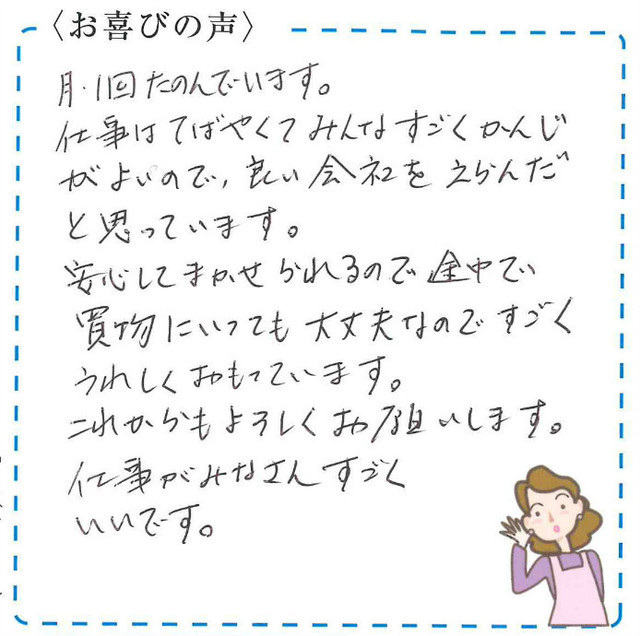 〈お喜びの声〉
月・1回たのんでいます。
仕事はてばやくてみんなすごくかんじ
がよいので、良い会社をえらんだ
と思っています。
安心してまかせられるので途中で
買物にいっても大丈夫なのですごく
うれしくおもっています。
これからもよろしくお願いします。
仕事がみなさんすごく
いいです。